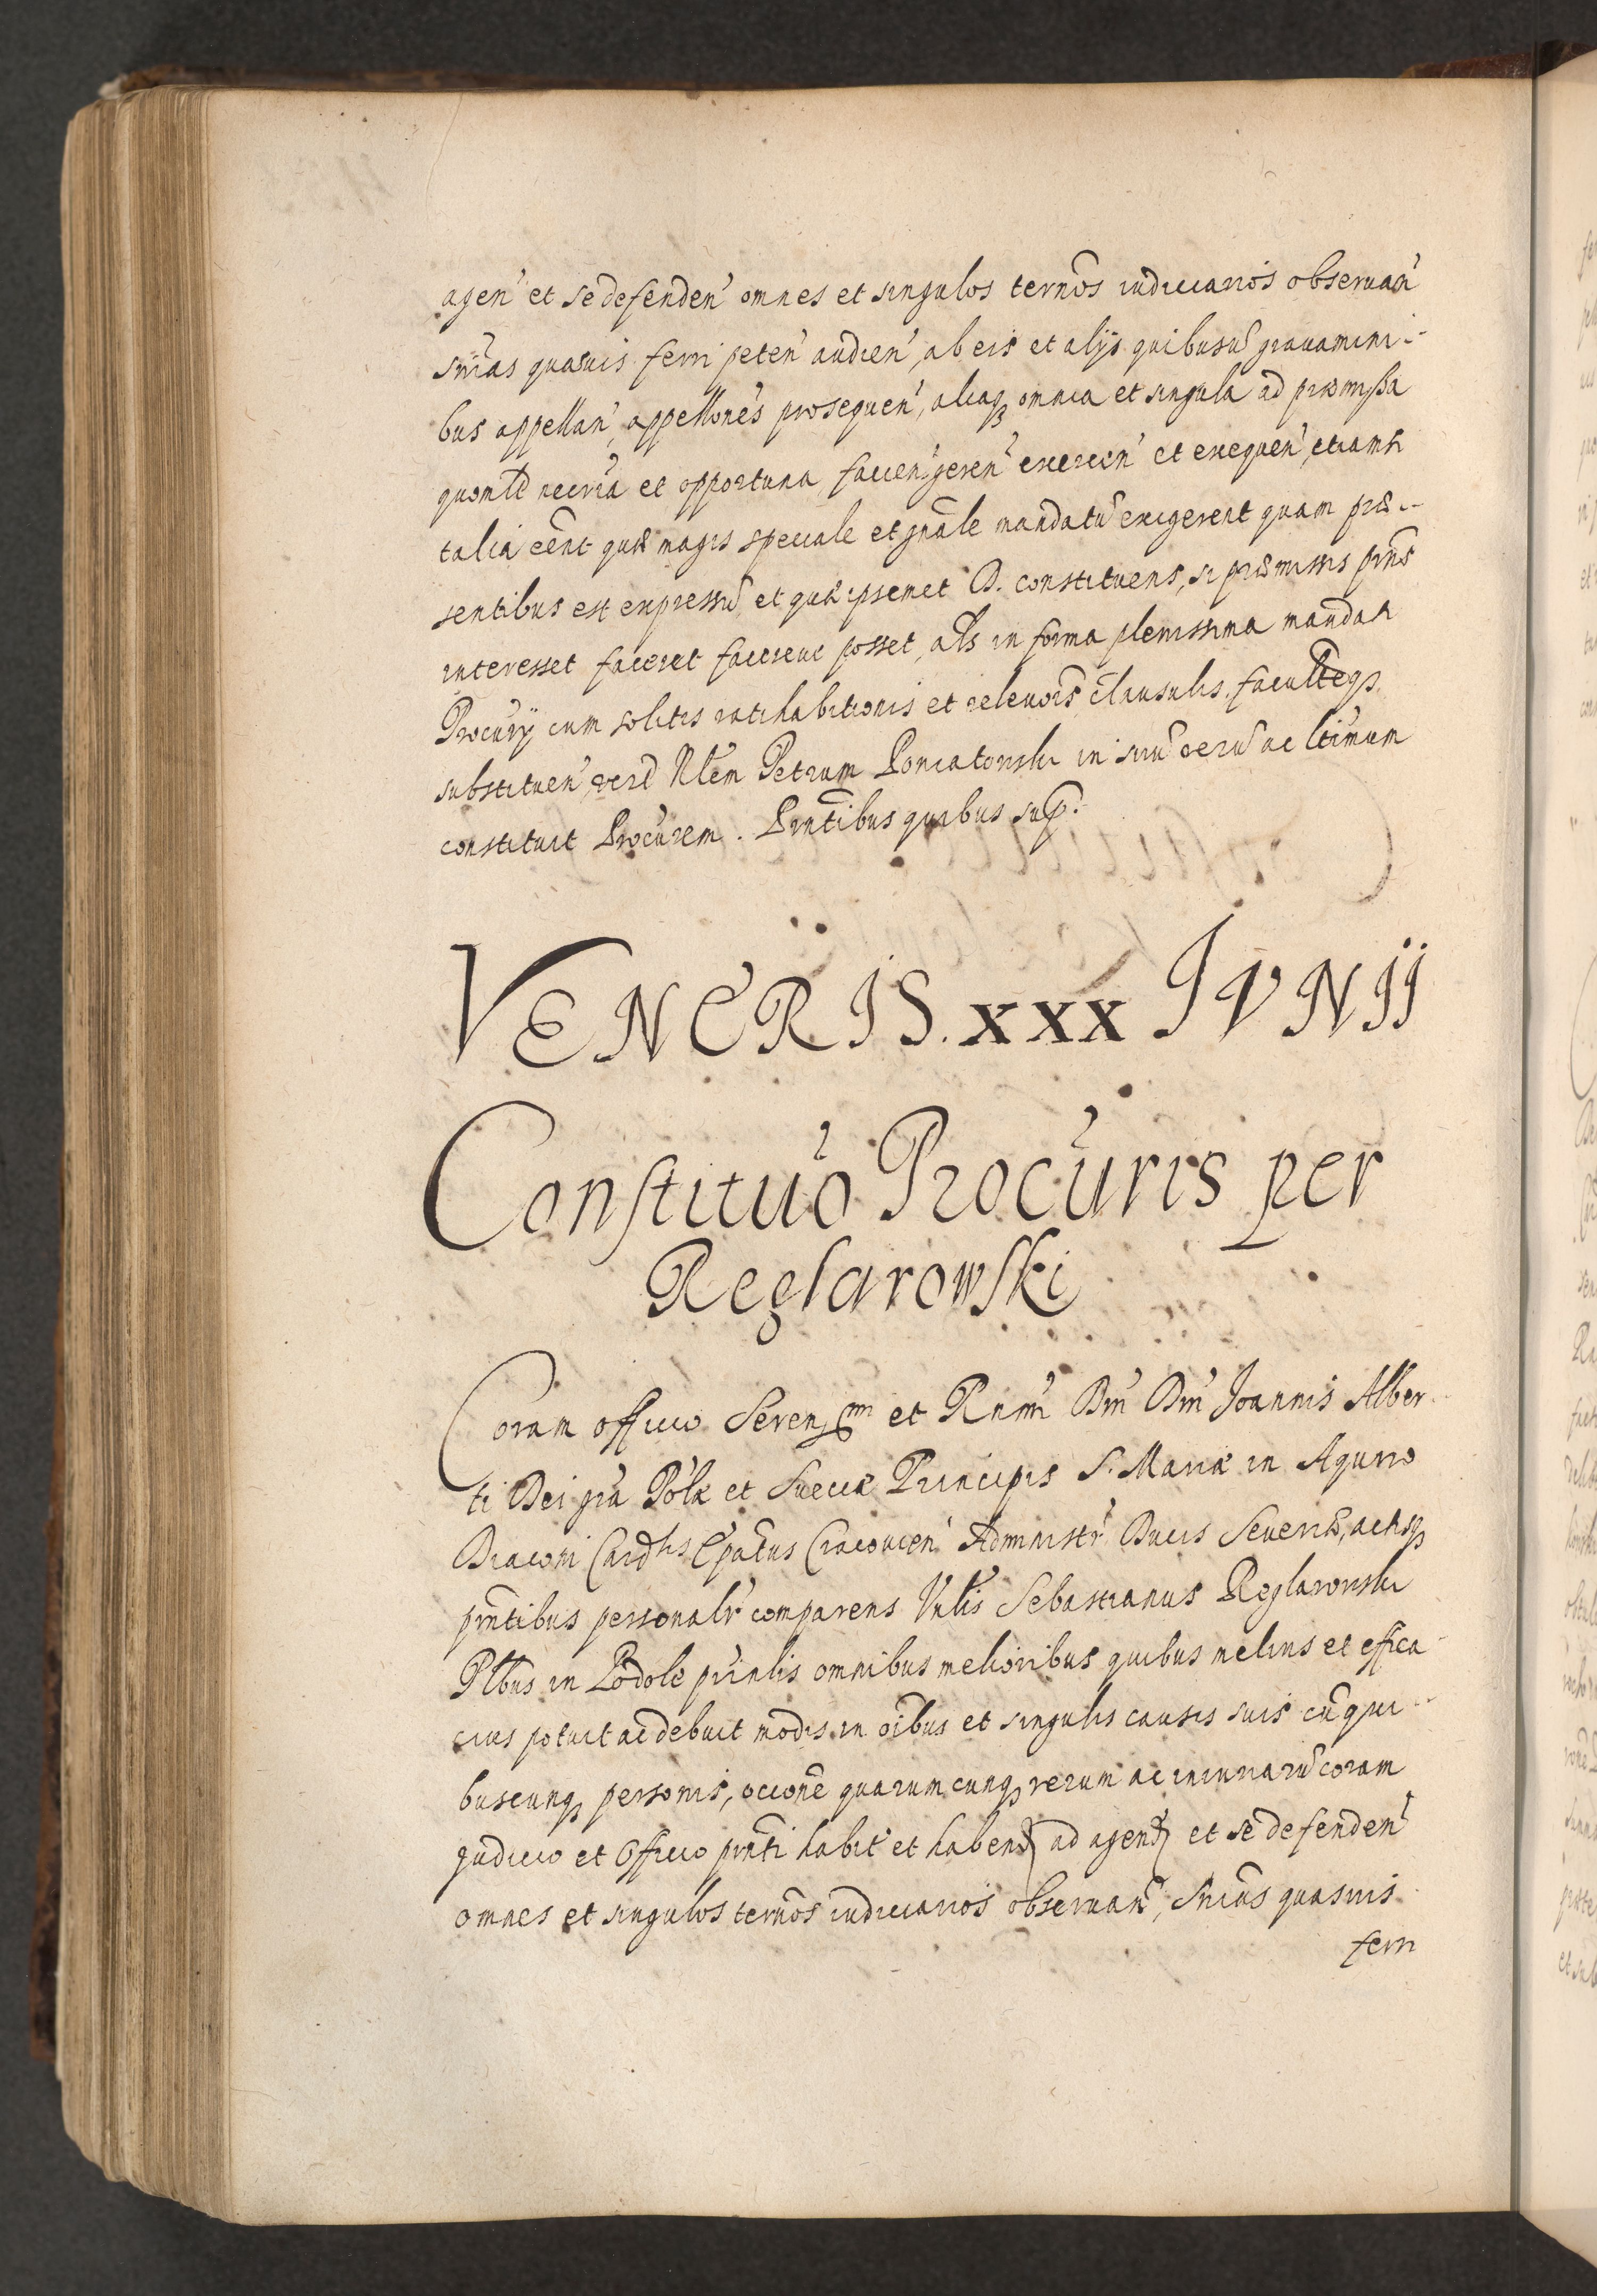 agen' et se defenden' omnes et singulos termōs iudiciarios observan'
sn̄ias quasvis ferri peten' audien', ab eis et alijs quibusvīs gravamini-
bus appellan', appellōnes prosequen', aliaq₃ omnia et singula ad præmissa
quomlt necria et opportuna facien' geren' exercen' et exequen', etiamsi
talia eēnt quæ magis speciale et gnāle mandatū exigerent quam præ-
sentibus est expressū et quæ ipsemet D. constituens, si præmissis pn̄s
interesset faceret facereve posset, als in forma plenissima mandati
Procūrij cum solitis ratihabitionis et relevōis clausulis, facultēq₃
substituen', verū Nlēm Petrum Poniatowski in suū verū ac ltimum
constituit Procūrem. Pn̄tibus quibus sup:
VENERIS. xxx IVNII
Constituo Procuris per
Reglarowski
Coram officio Serenss^mi et Rn̄mi Dn̄i Dn̄i Joannis Alber
ti Dei gra Polæ et Sueciæ Principis S. Mariæ in Aquiro
Diaconi Cardlis Epatus Cracovien' Administr' Ducis Severiæ, actisq₃
pn̄tibus personalr comparens Vnlis Sebastianus Reglarowski
Plbus in Podole prinlis omnibus melioribus quibus melius et effica
cius potuit ac debuit modis in oībus et singulis causis suis cū qui-
buscunq₃ personis, occione quarumcunq₃ rerum ac iniuriarū coram
Judicio et Officio pn̄ti habit' et habend ad agend et se defenden'
omnes et singulos termōs iudiciarios observan', Sn̄ias quasvis
ferri